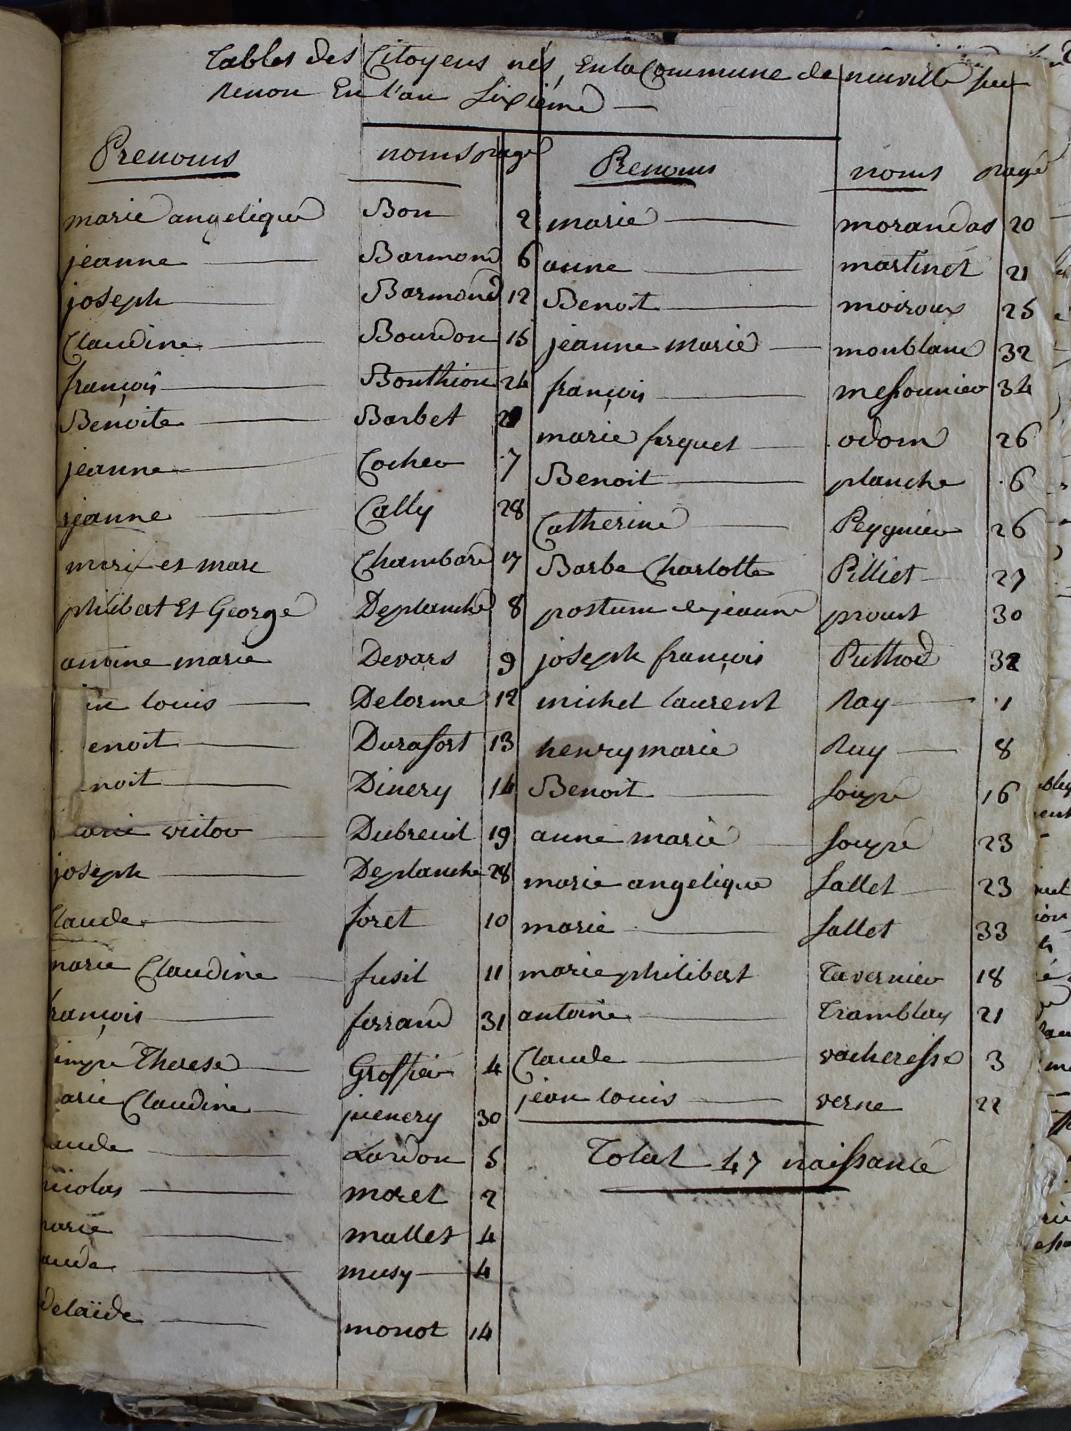 Tables des Citoyens nés En la Commune de neuville sur
Renon En l'an Sixieme
Prenoms noms page
marie angelique Bon 2
jeanne Barmond 6
joseph Barmond 12
Claudine Bourdon 15
françois Bouthion 24
Benoite Barbet
jeanne Cocher 7
jeanne Cally 28
marie et marc Chambard 17
philibert Et George Deplanche 8
antoine marie Devars 9
louis Delorme 12
enoit Durafort 13
noit Dinery 14
victor Dubreuil 19
joseph Deplanche 28
Claude foret 10
marie Claudine fusil 11
françois ferrand 31
Therese Grossier 4
arie Claudine juenery 30
aude Lardon 5
nicolas moret 2
marie mallet 4
aude musy 4
delaïde monot 14
Prenoms noms page
marie morandas 20
anne martinet 21
Benoit moiroux 25
jeanne marie monblanc 32
françois messonnier 34
marie odom 26
Benoit planche 6
Catherine Peyguier 26
Barbe Charlotte Pilliet 27
postume jeanne proust 30
joseph françois Puthod 32
michel laurent Ray 1
henry marie Ray 8
Benoit soupé 16
anne marie soupé 23
marie angelique sallet 23
marie sallet 33
marie philibert Tavernier 18
antoine Tramblay 21
Claude vacheresse 3
jean louis verne 22
Total 47 naissance